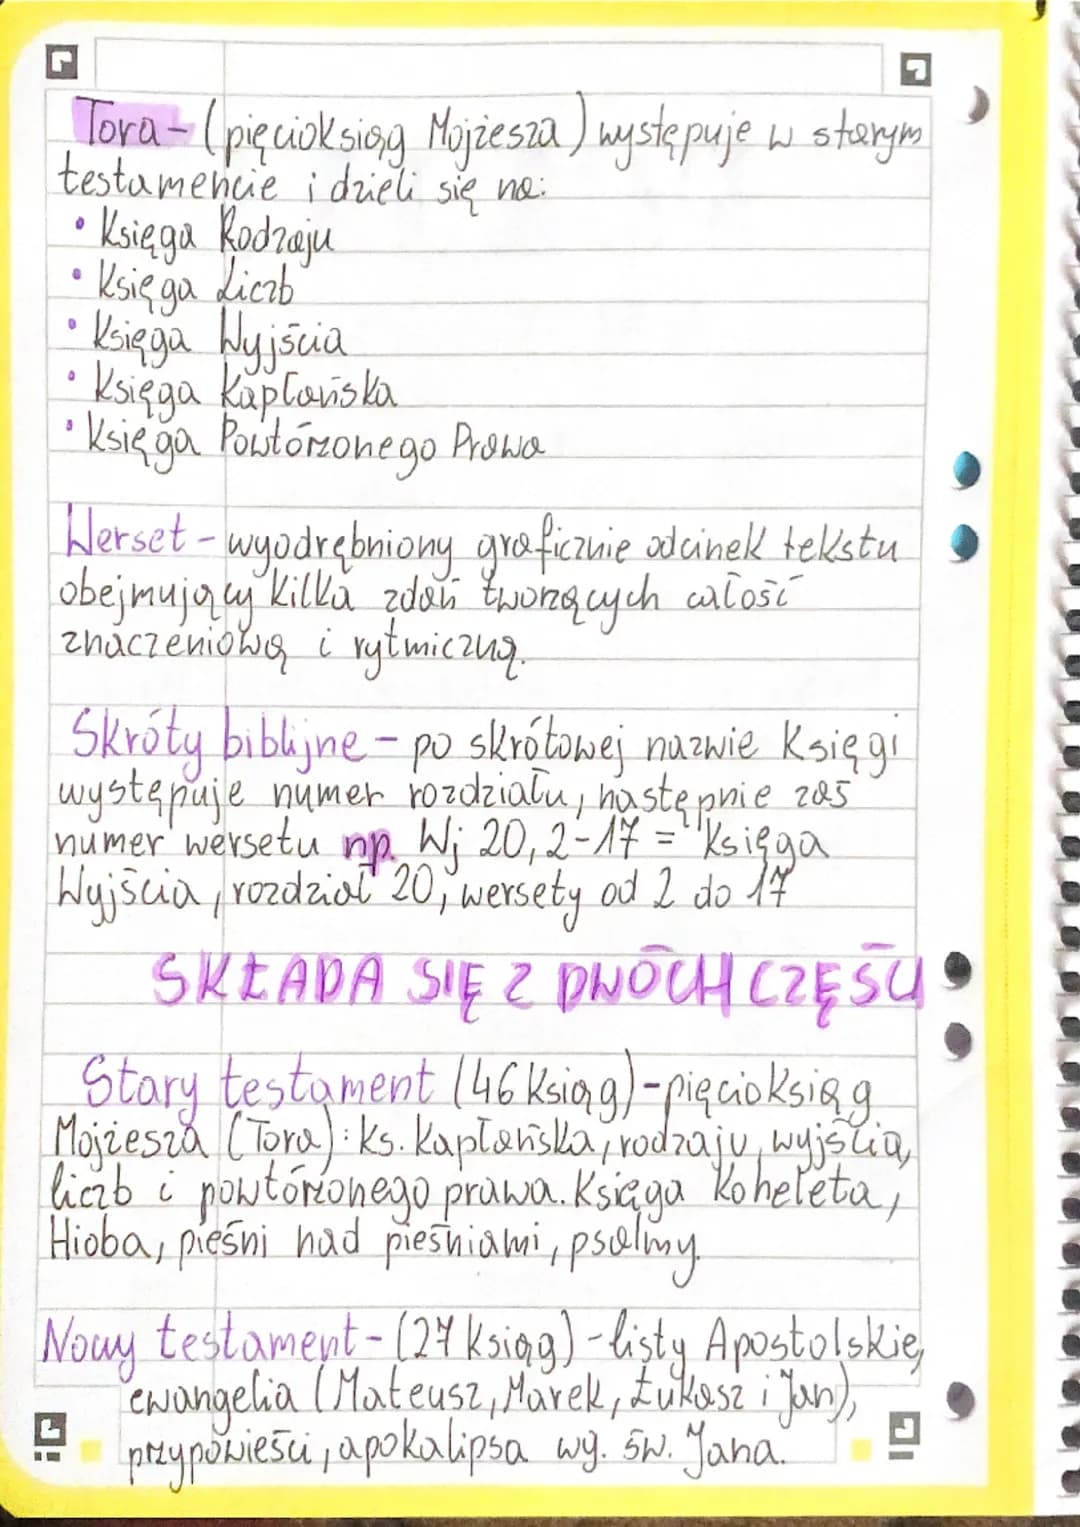 Tora - (pięcioksiąg Mojżesza) występuje w starym
testamencie i dzieli się na:
• Księga Rodzaju
• Księga Liczb
• Księga Wyjścia
• Księga Kapłańska
• Księga Powtórzonego Prawa
Werset - wyodrębniony graficznie odcinek tekstu
obejmujący kilka zdań tworzących całość
znaczeniową i rytmiczną.
Skróty biblijne - po skrótowej nazwie Księgi
występuje numer rozdziału, następnie zaś
numer wersetu np. Wj 20, 2-17 = "Księga
Wyjścia, rozdział 20, wersety od 2 do 17
SKŁADA SIĘ Z DWÓCH CZĘŚCI
Stary testament (46 Ksiąg) - pięcioksiąg
Mojżesza (Tora): Ks. Kapłańska, rodzaju, wyjścia,
liczb i powtórzonego prawa. Księga Koheleta,
Hioba, pieśni nad pieśniami, psalmy.
Nowy testament - (27 Ksiąg) - listy Apostolskie,
ewangelia (Mateusz, Marek, Łukasz i Jan),
przypowieści, apokalipsa wg. św. Jana.